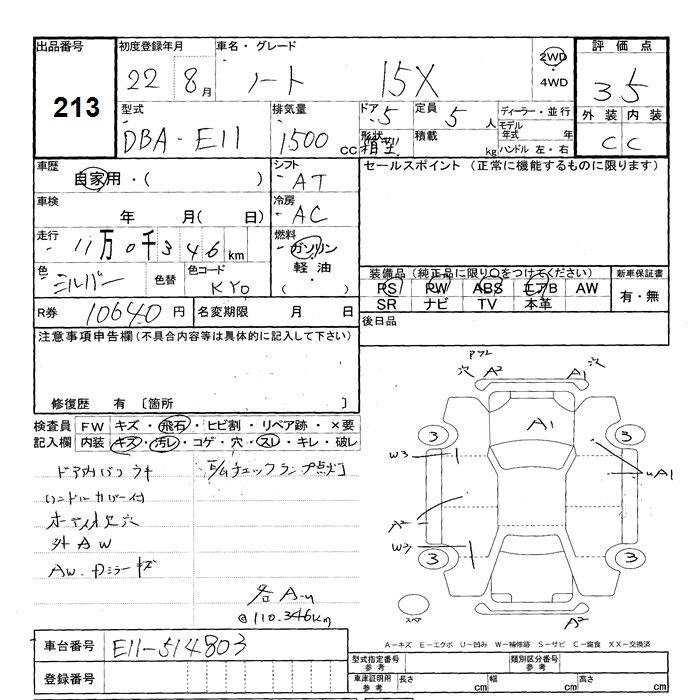 出品番号
213
初度登録年月
22 8月
車名・グレード
ノート 15X
2WD
・4WD
評価点
3.5
外装 内装
C C
型式
DBA-E11
排気量
1500 CC
ドア 5
形状 箱型
定員 5 人
積載 kg
ディーラー・並行
モデル年式 年
ハンドル 左・右
車歴
自家用・( )
シフト
AT
セールスポイント (正常に機能するものに限ります)
車検
年 月( 日)
冷房
AC
走行
11万0千346km
燃料
ガソリン
軽油・
( )
色
シルバー
色替
色コード
KY0
装備品 (純正品に限り○をつけてください)
PS PW ABS エアB AW
SR ナビ TV 本革
新車保証書
有・無
R券 10640円
名変期限 月 日
後日品
注意事項申告欄(不具合内容等は具体的に記入して下さい)
修復歴 有 〔箇所
検査員記入欄
FW キズ・飛石・ヒビ割・リペア跡・×要
内装 キズ・汚レ・コゲ・穴・スレ・キレ・破レ
E/Gチェックランプ点灯
外AW
AW・Dミラーキズ
各A-U
@110.346Km
穴 A2 A1 穴
A1
3 3
W3
UA1
A2
W3
3 3
スペア
A2
A-キズ E-エクボ U-凹み W-補修跡 S-サビ C-腐食 XX-交換済
車台番号
E11-514803
登録番号
型式指定番号
参考
類別区分番号
参考
車庫証明用
参考
長さ cm
幅 cm
高さ cm